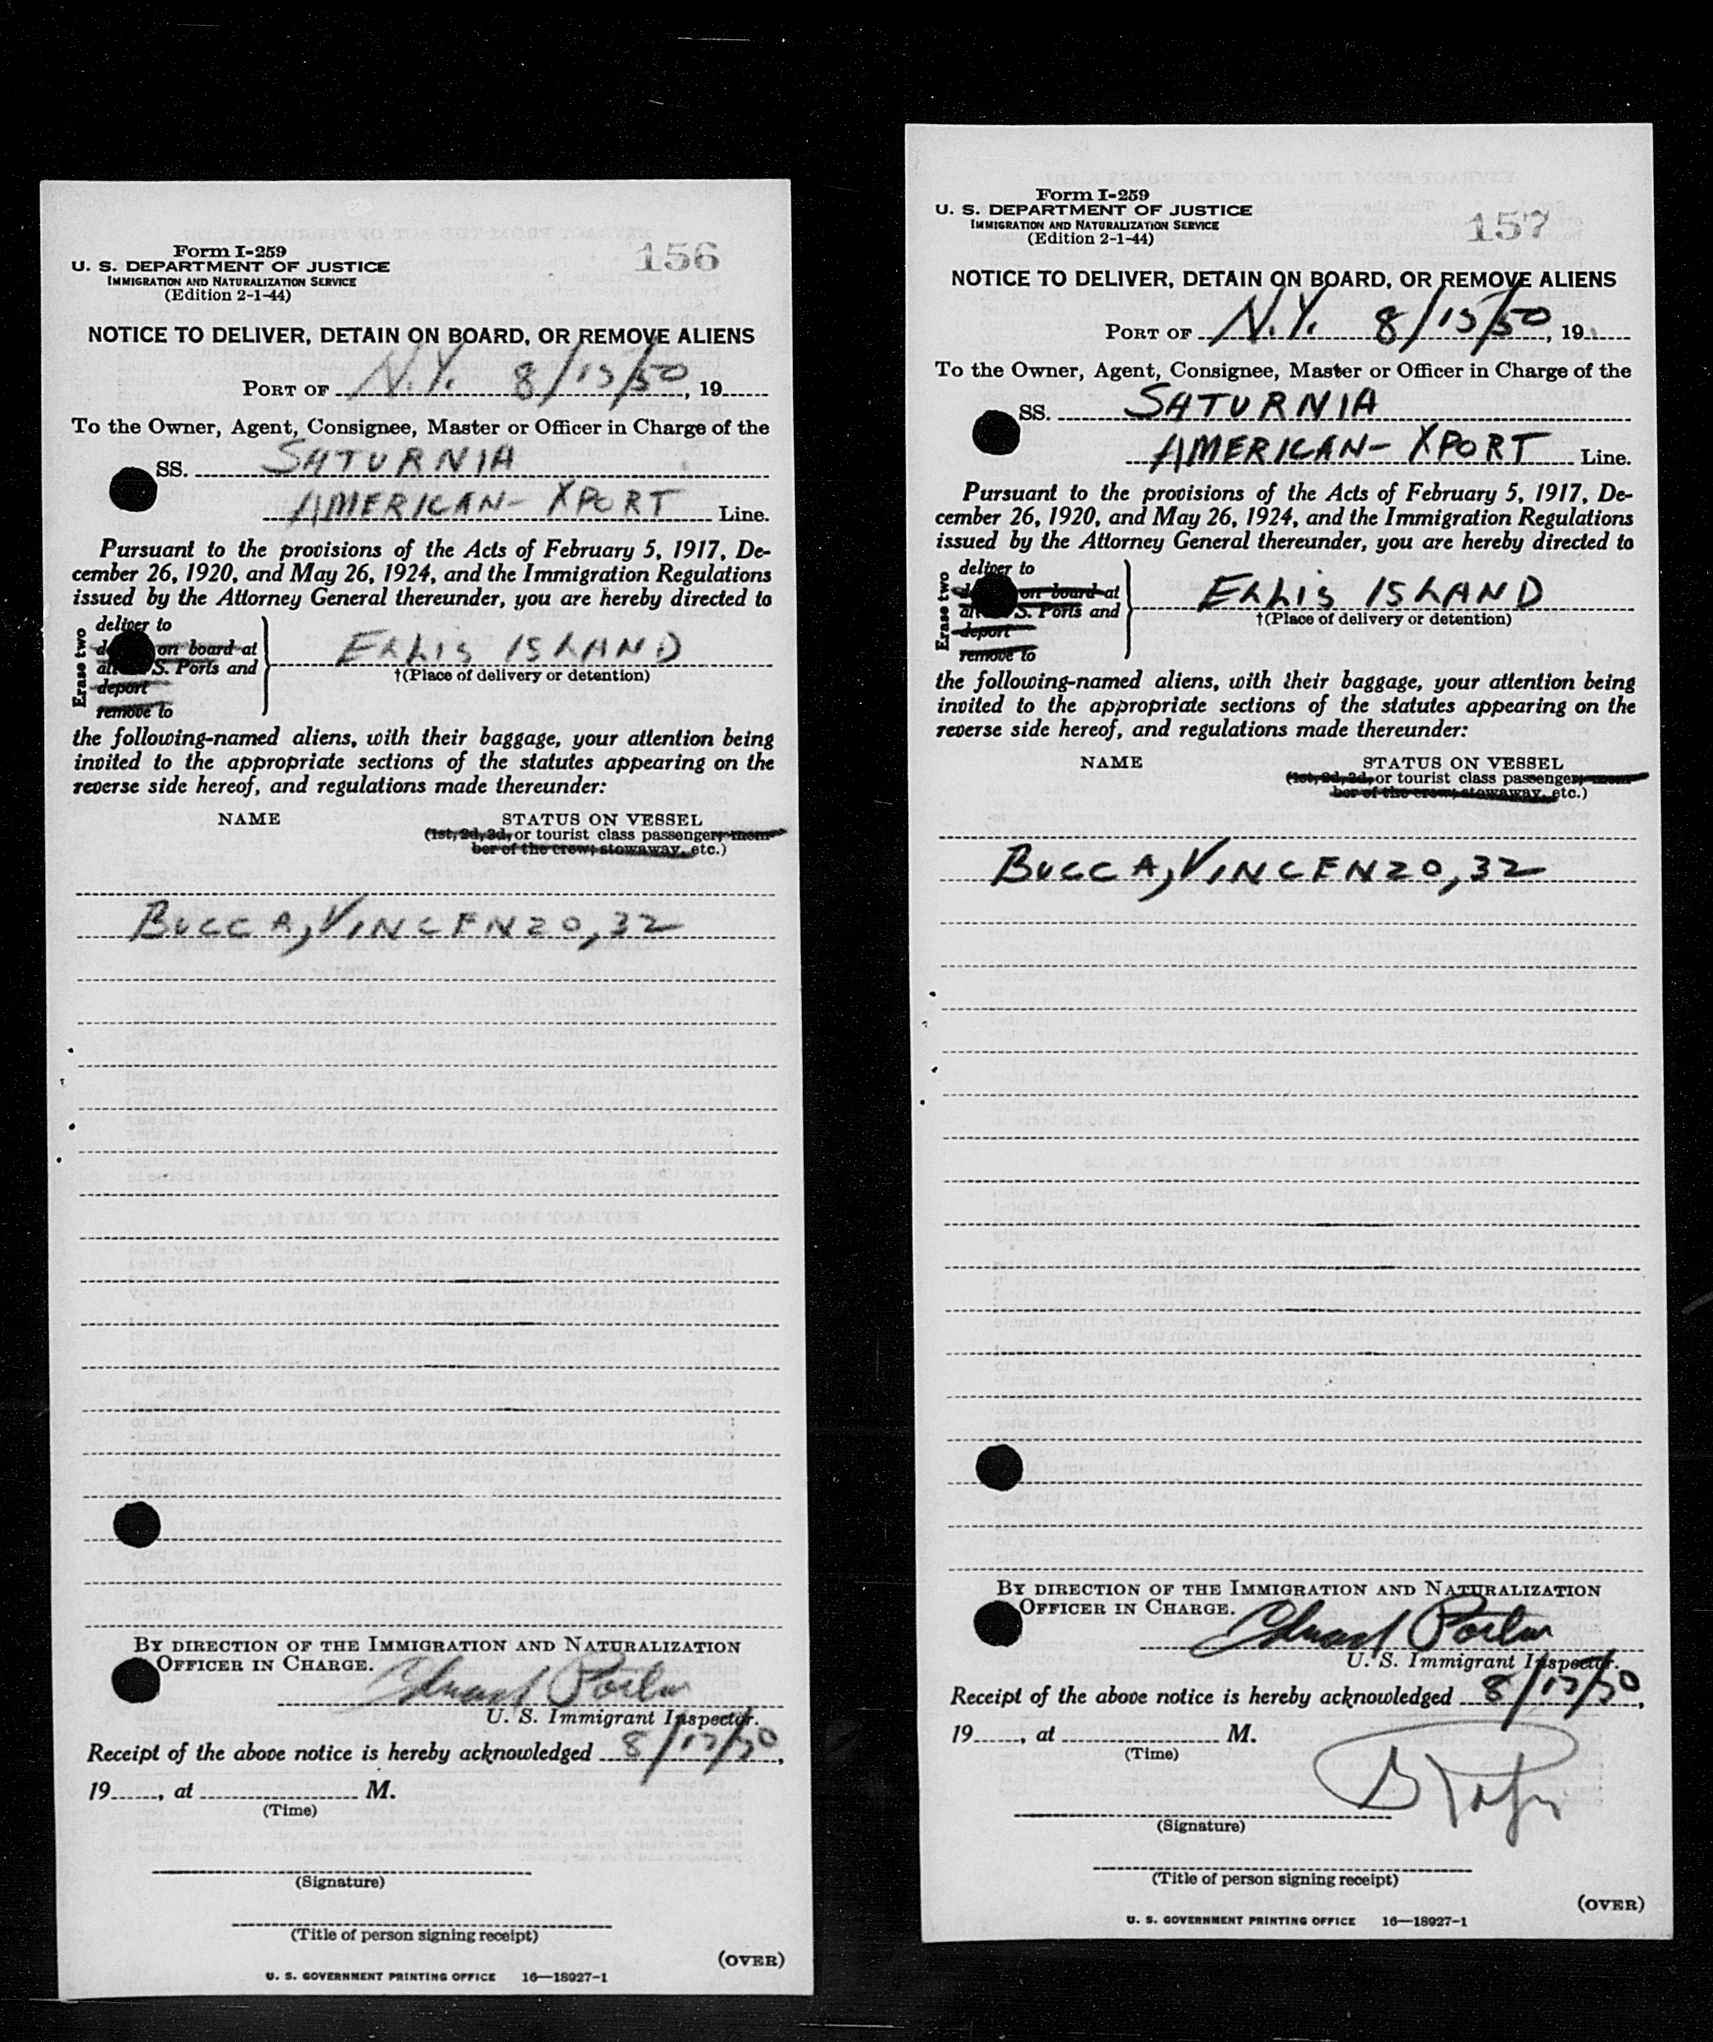 156
Form I-259
U. S. DEPARTMENT OF JUSTICE
IMMIGRATION AND NATURALIZATION SERVICE
(Edition 2-1-44)
NOTICE TO DELIVER, DETAIN ON BOARD, OR REMOVE ALIENS
PORT OF N.Y. 8/15/50, 19
To the Owner, Agent, Consignee, Master or Officer in Charge of the
SS. SATURNIA
AMERICAN-XPORT Line.
Pursuant to the provisions of the Acts of February 5, 1917, De-
cember 26, 1920, and May 26, 1924, and the Immigration Regulations
issued by the Attorney General thereunder, you are hereby directed to
Erase two
deliver to
on board at
S. Ports and
deport
remove to
ELLIS ISLAND
†(Place of delivery or detention)
the following-named aliens, with their baggage, your attention being
invited to the appropriate sections of the statutes appearing on the
reverse side hereof, and regulations made thereunder:
NAME STATUS ON VESSEL
(1st, 2d, 3d, or tourist class passenger, mem-
ber of the crew, stowaway, etc.)
BUCCA, VINCENZO, 32
BY DIRECTION OF THE IMMIGRATION AND NATURALIZATION
OFFICER IN CHARGE.
U. S. Immigrant Inspector.
Receipt of the above notice is hereby acknowledged 8/15/50,
19, at M.
(Time)
(Signature)
(Title of person signing receipt)
(OVER)
U. S. GOVERNMENT PRINTING OFFICE 16—18927-1
157
Form I-259
U. S. DEPARTMENT OF JUSTICE
IMMIGRATION AND NATURALIZATION SERVICE
(Edition 2-1-44)
NOTICE TO DELIVER, DETAIN ON BOARD, OR REMOVE ALIENS
PORT OF N.Y. 8/15/50, 19
To the Owner, Agent, Consignee, Master or Officer in Charge of the
SS. SATURNIA
AMERICAN-XPORT Line.
Pursuant to the provisions of the Acts of February 5, 1917, De-
cember 26, 1920, and May 26, 1924, and the Immigration Regulations
issued by the Attorney General thereunder, you are hereby directed to
Erase two
deliver to
on board at
S. Ports and
deport
remove to
ELLIS ISLAND
†(Place of delivery or detention)
the following-named aliens, with their baggage, your attention being
invited to the appropriate sections of the statutes appearing on the
reverse side hereof, and regulations made thereunder:
NAME STATUS ON VESSEL
(1st, 2d, 3d, or tourist class passenger, mem-
ber of the crew, stowaway, etc.)
BUCCA, VINCENZO, 32
BY DIRECTION OF THE IMMIGRATION AND NATURALIZATION
OFFICER IN CHARGE.
U. S. Immigrant Inspector.
Receipt of the above notice is hereby acknowledged 8/15/50,
19, at M.
(Time)
(Signature)
(Title of person signing receipt)
(OVER)
U. S. GOVERNMENT PRINTING OFFICE 16—18927-1